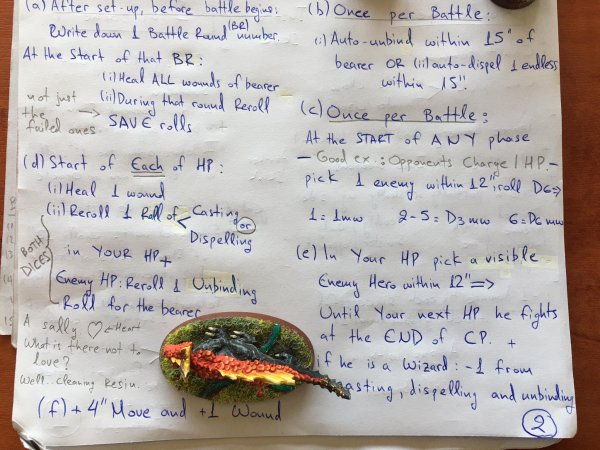 (a) After set-up, before battle begins:
Write down 1 Battle Round (BR) number.
At the Start of that BR:
(i) Heal ALL wounds of bearer
(ii) During that round Reroll
SAVE rolls
not just
the
failed ones
(d) Start of Each of HP:
(i) Heal 1 wound
(ii) Reroll 1 Roll of < Casting or
Dispelling
BOTH
DICES
in YOUR HP +
Enemy HP: Reroll 1 Unbinding
Roll for the bearer
A sally ♡ ← Heart
What is there not to
love?
Well.. cleaning Resin.
(f) + 4" Move and +1 Wound
(b) Once per Battle:
(i) Auto-unbind within 15" of
bearer OR (ii) auto-dispel 1 endless
within 15".
(c) Once per Battle:
At the START of ANY phase
- Good ex.: Opponents Charge / HP. -
pick 1 enemy within 12", roll D6 ⇒
1 = 1mw 2-5 = D3 mw 6 = D6 mw
(e) In Your HP pick a visible
Enemy Hero within 12" ⇒
Until Your next HP he fights
at the END of CP. +
if he is a Wizard: -1 from
casting, dispelling and unbinding
2